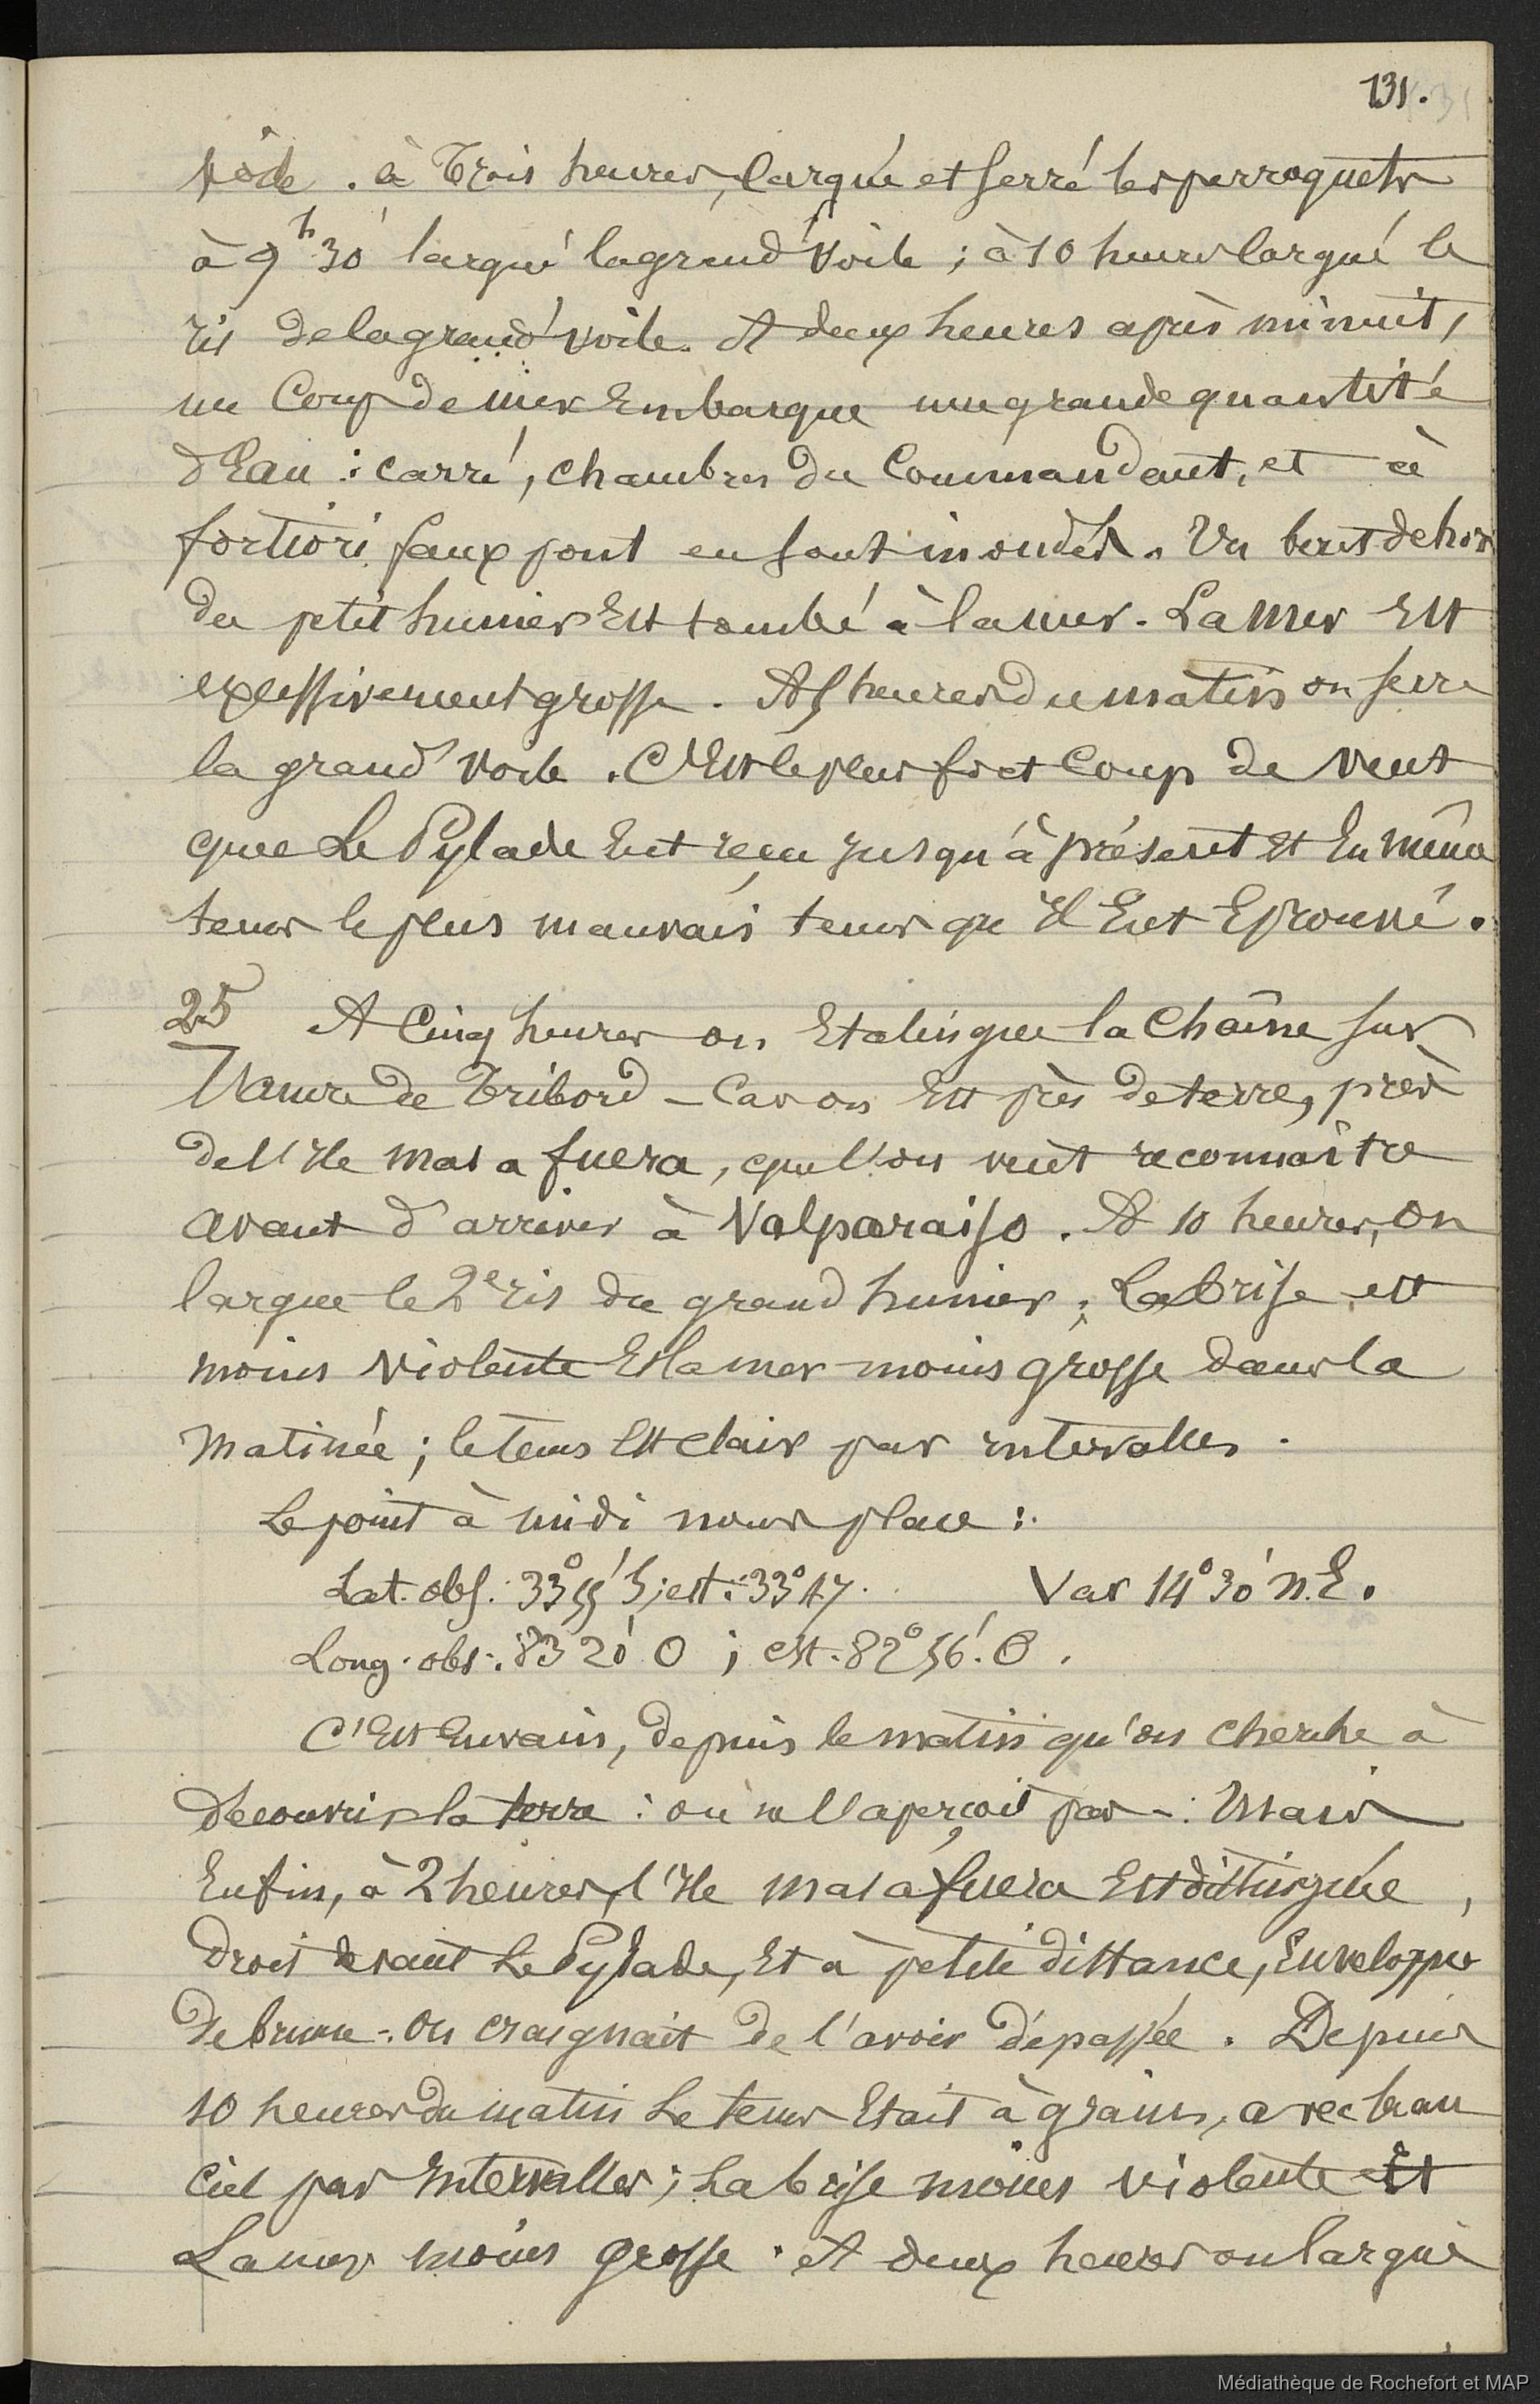 131.
voile. à Trois heures, largué et serré les perroquets
à 9h 30' largué la grand'voile ; à 10 heures largué le
ris de la grand'voile. A deux heures après minuit,
un Coup de mer Embarque une grande quantité
d'Eau : carré, chambres du Commandant, et à
fortiori faux pont en sont inondés. Un bout dehors
du petit hunier Est tombé à la mer. La mer Est
excessivement grosse. A 5 heures du matin on serre
la grand'voile. C'Est le plus fort Coup de vent
que Le Pylade Eut reçu jusqu'à présent Et En même
tems le plus mauvais tems qu'il Eut Eprouvé.
25 A Cinq heures on Etalingue la Chaîne sur
l'ancre de Tribord - Car on Est près de terre, près
de l'Ile mas a fuera, que l'on veut reconnaître
avant d'arriver à Valparaiso. A 10 heures, on
largue le 2e ris du grand hunier ; La brise est
moins violente Et la mer moins grosse dans la
matinée ; le tems Est clair par intervalles.
Le point à midi nous place :
Lat. obs. : 33° 55' S ; est. : 33° 47. Var 14° 30' N.E.
Long. obs. : 83 20' O ; est. 82° 56'. O.
C'Est En vain, depuis le matin qu'on cherche à
découvrir la terre : on ne l'aperçoit pas -. Mais
Enfin, à 2 heures, l'Ile mas a fuera Est distinguée,
droit devant Le Pylade, Et à petite distance, Enveloppée
de brume -. On craignait de l'avoir dépassée. Depuis
10 heures du matin Le tems Etait à grains, avec beau
Ciel par Intervalles ; La brise moins violente Et
La mer moins grosse. A deux heures on largue